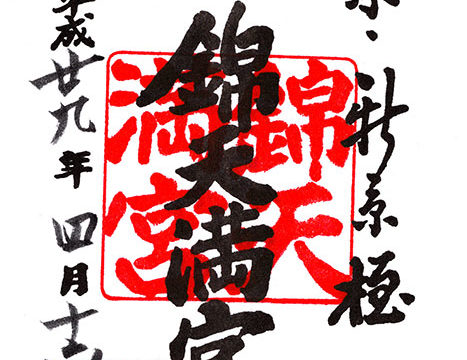 京・新京極
錦天満宮
錦天
満宮
平成廿九年四月十